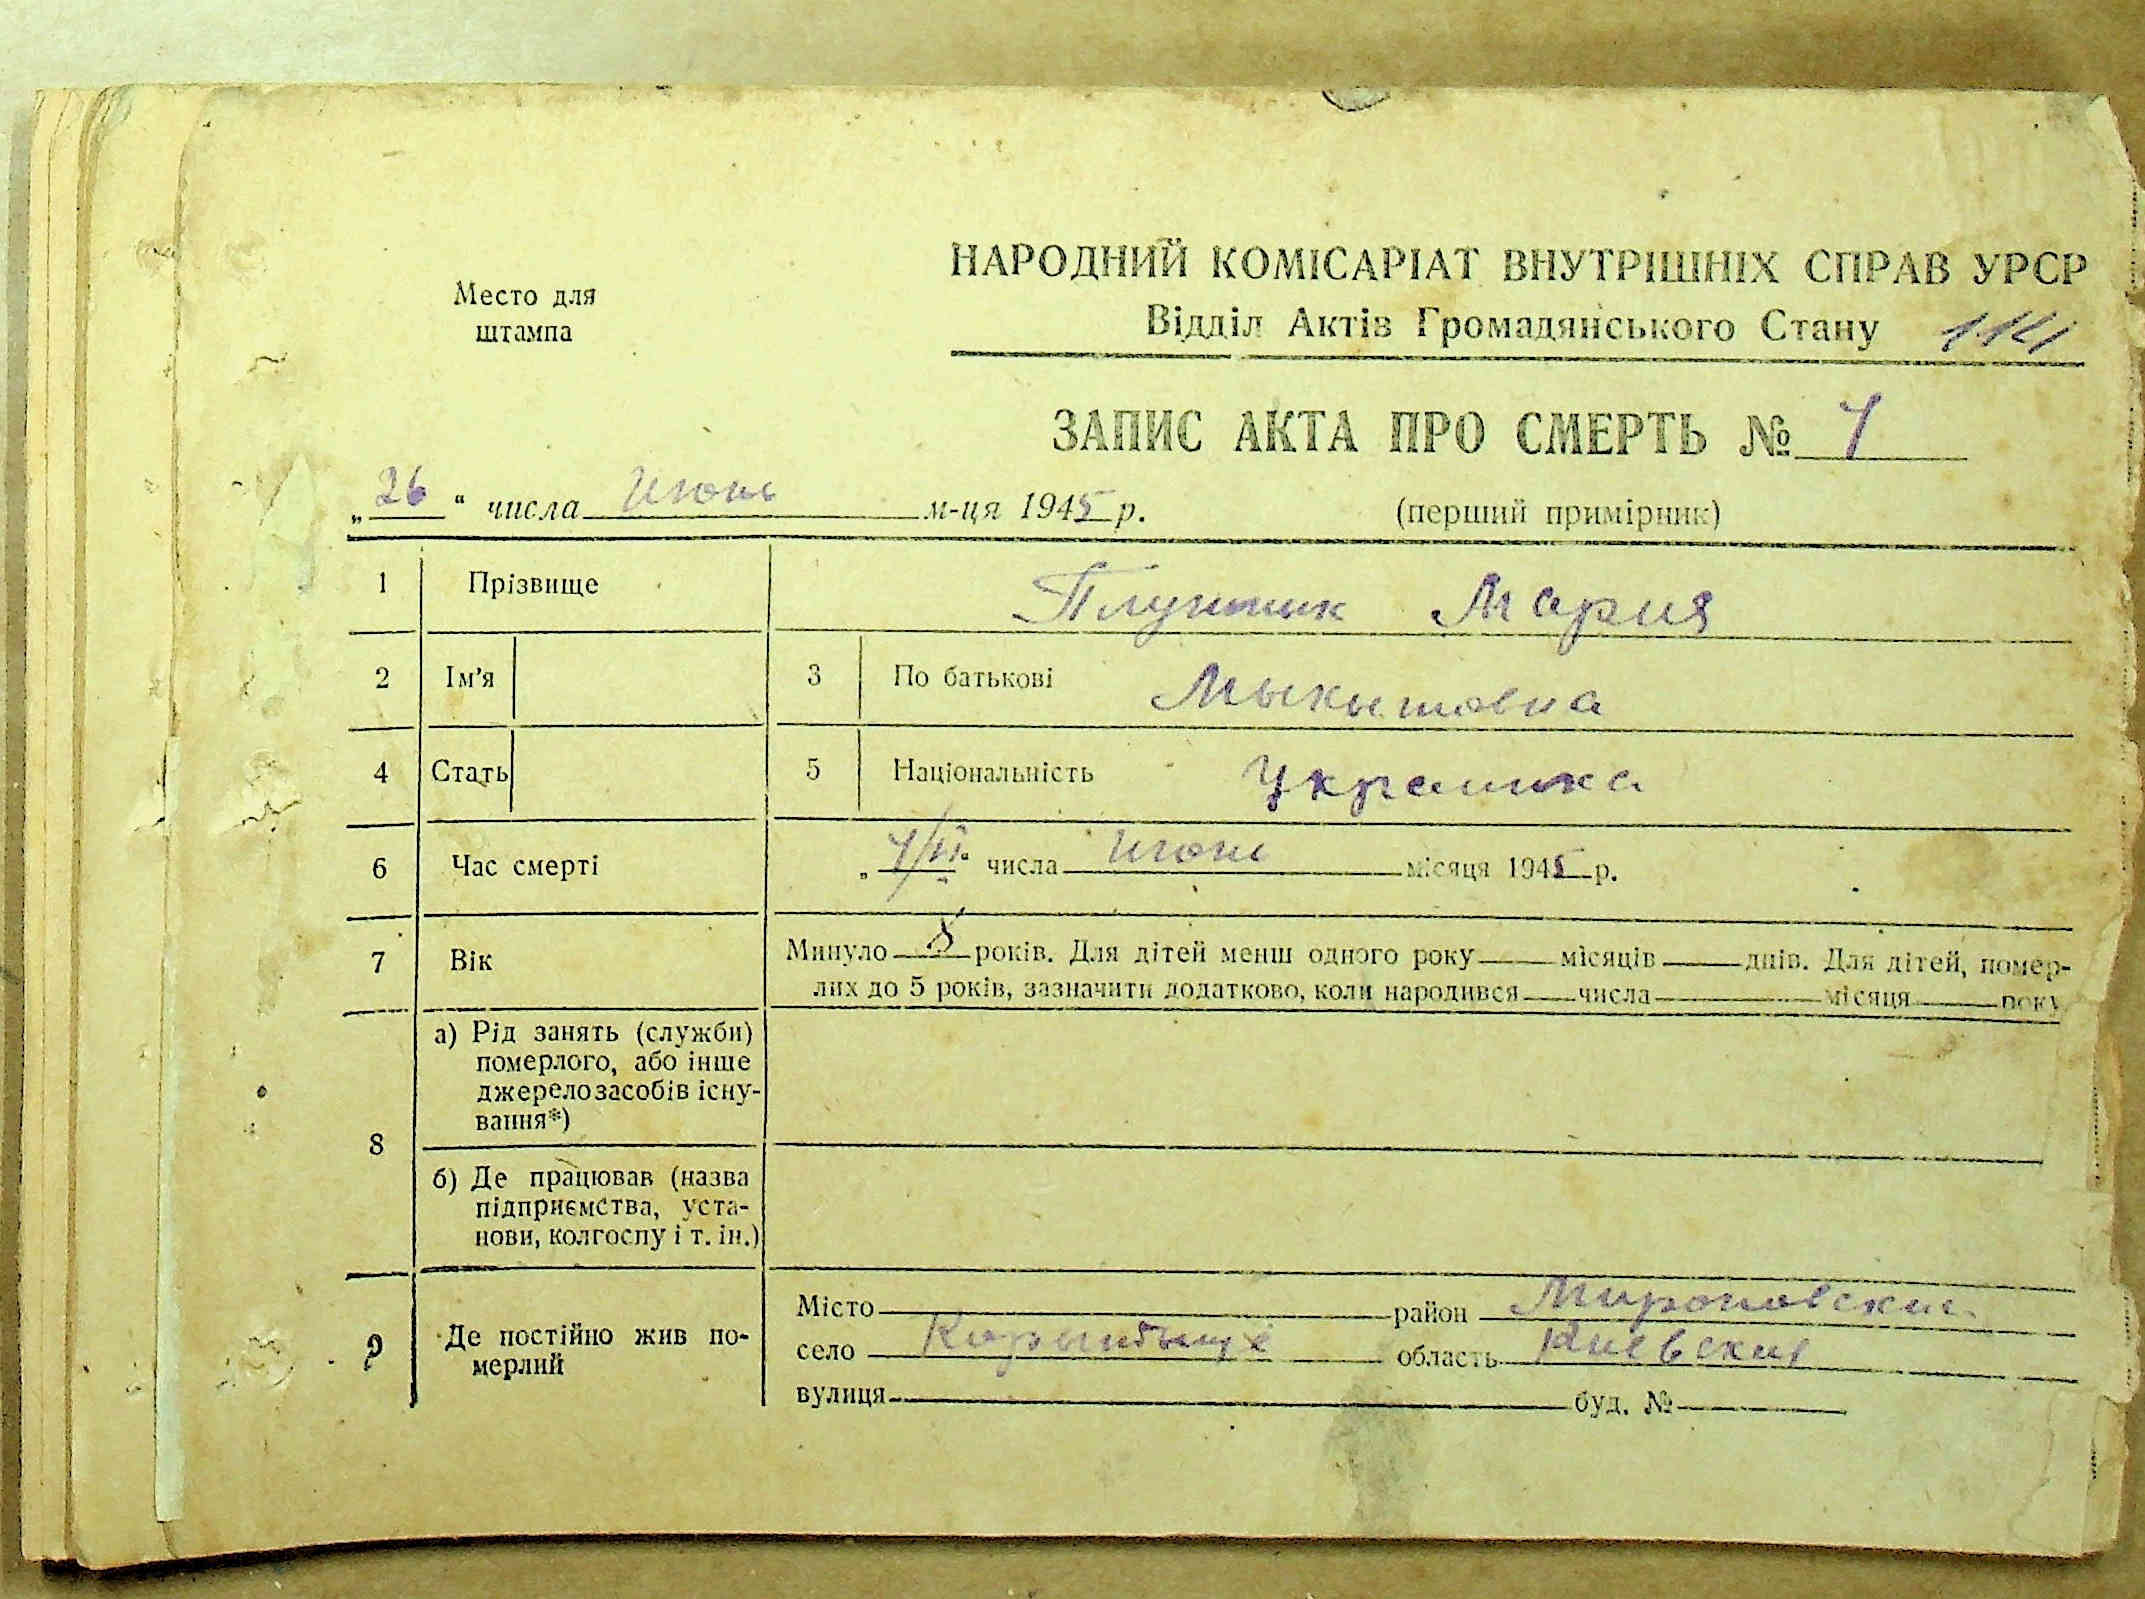 НАРОДНИЙ КОМІСАРІАТ ВНУТРІШНІХ СПРАВ УРСР
Место для
штампа
Відділ Актів Громадянського Стану
ЗАПИС АКТА ПРО СМЕРТЬ № 7
„ 26 “ числа Июнь м-ця 1945 р.
(перший примірник)
1 Прізвище Плутник Мария
2 Ім'я 3 По батькові Мыкытовна
4 Стать 5 Національність Украинка
6 Час смерті „ числа Июнь місяця 1945 р.
7 Вік Минуло років. Для дітей менш одного року місяців днів. Для дітей, помер-
лих до 5 років, зазначити додатково, коли народився числа місяця року
8 а) Рід занять (служби)
померлого, або інше
джерело засобів існу-
вання*)
б) Де працював (назва
підприємства, уста-
нови, колгоспу і т. ін.)
9 Де постійно жив по-
мерлий
Місто район Мироновский
село область Киевская
вулиця буд. №